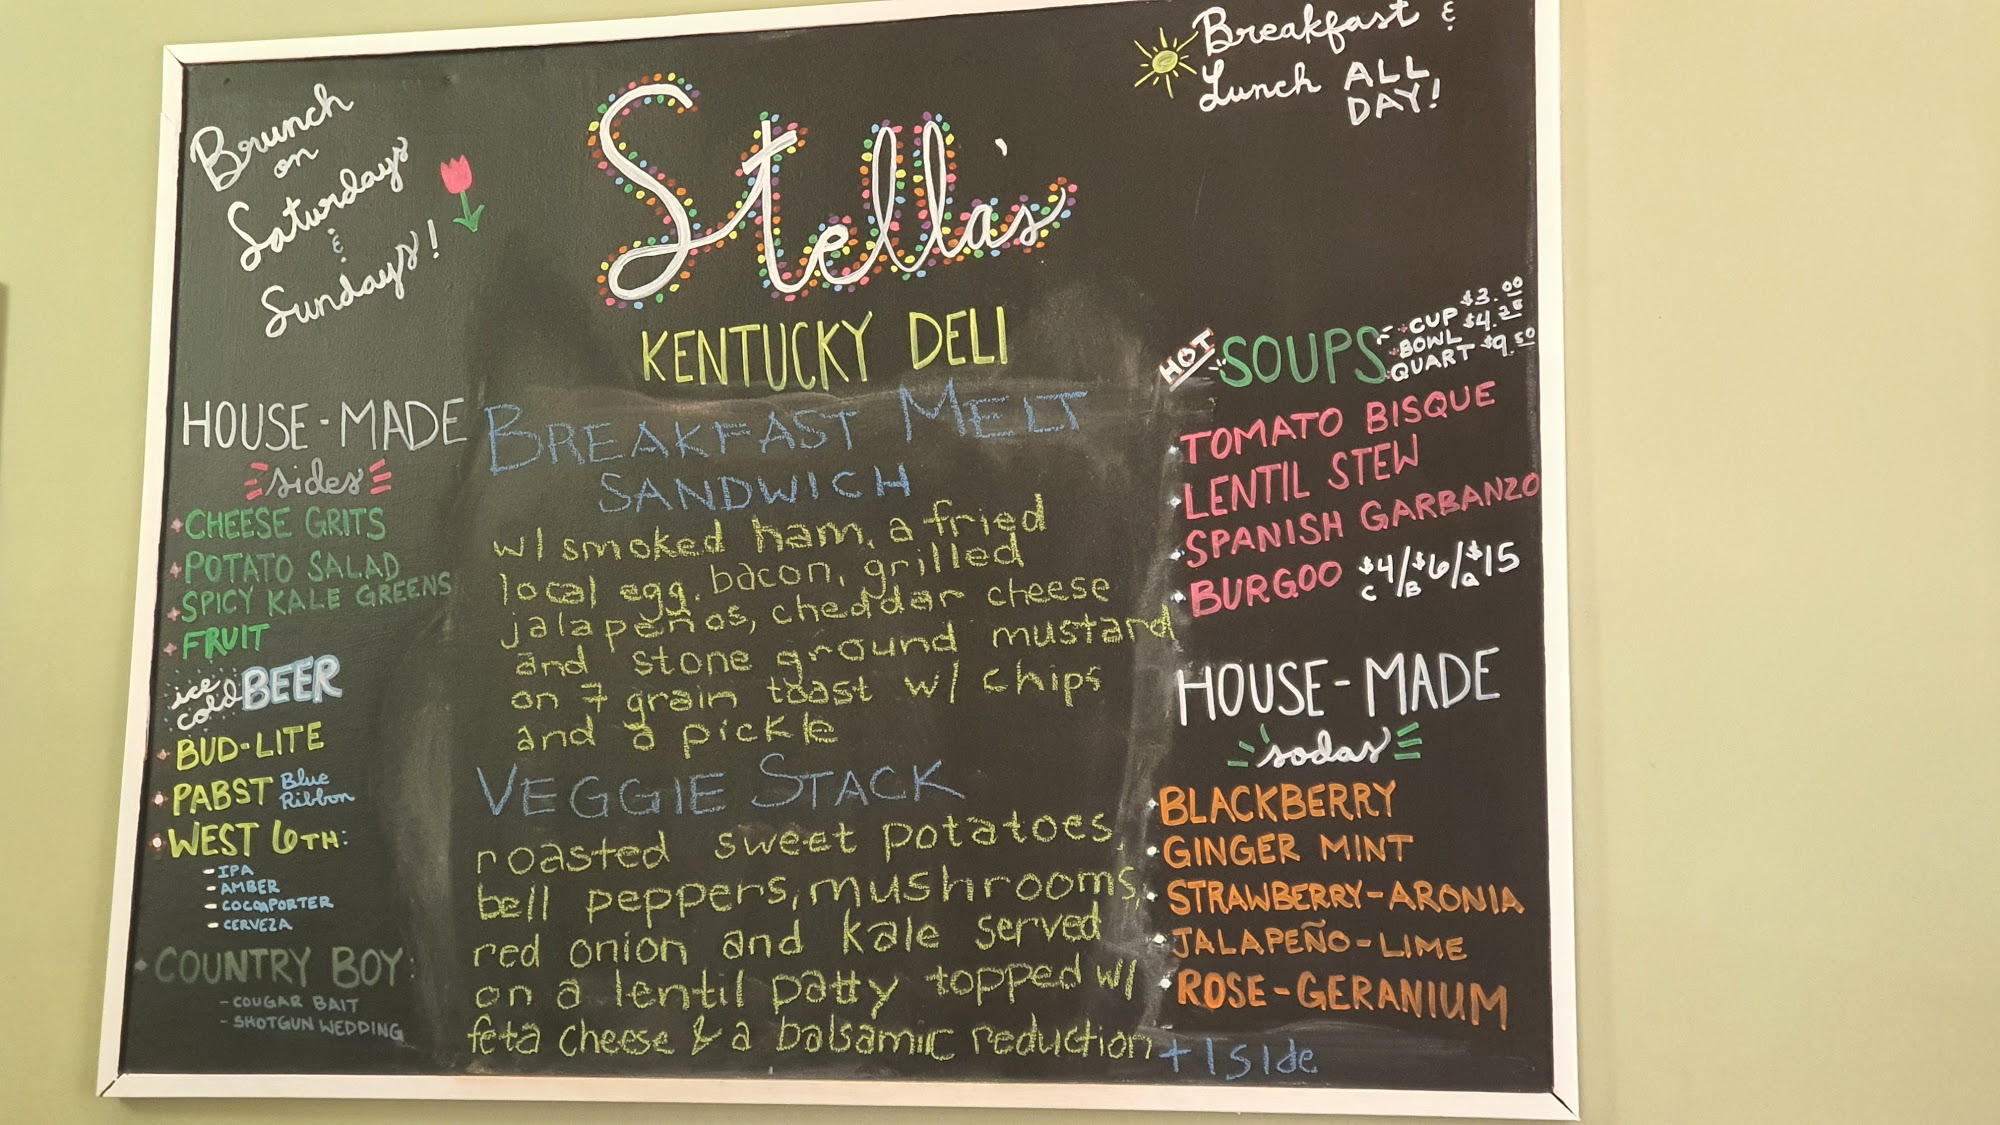 Brunch
on
Saturdays
&
Sundays!
Stella's
KENTUCKY DELI
Breakfast &
Lunch ALL
DAY!
HOUSE-MADE
sides
CHEESE GRITS
POTATO SALAD
SPICY KALE GREENS
FRUIT
ice cold BEER
BUD-LITE
PABST Blue Ribbon
WEST 6TH:
- IPA
- AMBER
- COCOAPORTER
- CERVEZA
COUNTRY BOY:
- COUGAR BAIT
- SHOTGUN WEDDING
BREAKFAST MELT
SANDWICH
w/ smoked ham, a fried
local egg, bacon, grilled
jalapeños, cheddar cheese
and stone ground mustard
on 7 grain toast w/ chips
and a pickle
VEGGIE STACK
roasted sweet potatoes,
bell peppers, mushrooms,
red onion and kale served
on a lentil patty topped w/
feta cheese & a balsamic reduction
+ 1 side
HOT SOUPS
CUP $3.00
BOWL $4.25
QUART $9.50
TOMATO BISQUE
LENTIL STEW
SPANISH GARBANZO
BURGOO $4/$6/$15
C B Q
HOUSE-MADE
sodas
BLACKBERRY
GINGER MINT
STRAWBERRY-ARONIA
JALAPEÑO-LIME
ROSE-GERANIUM